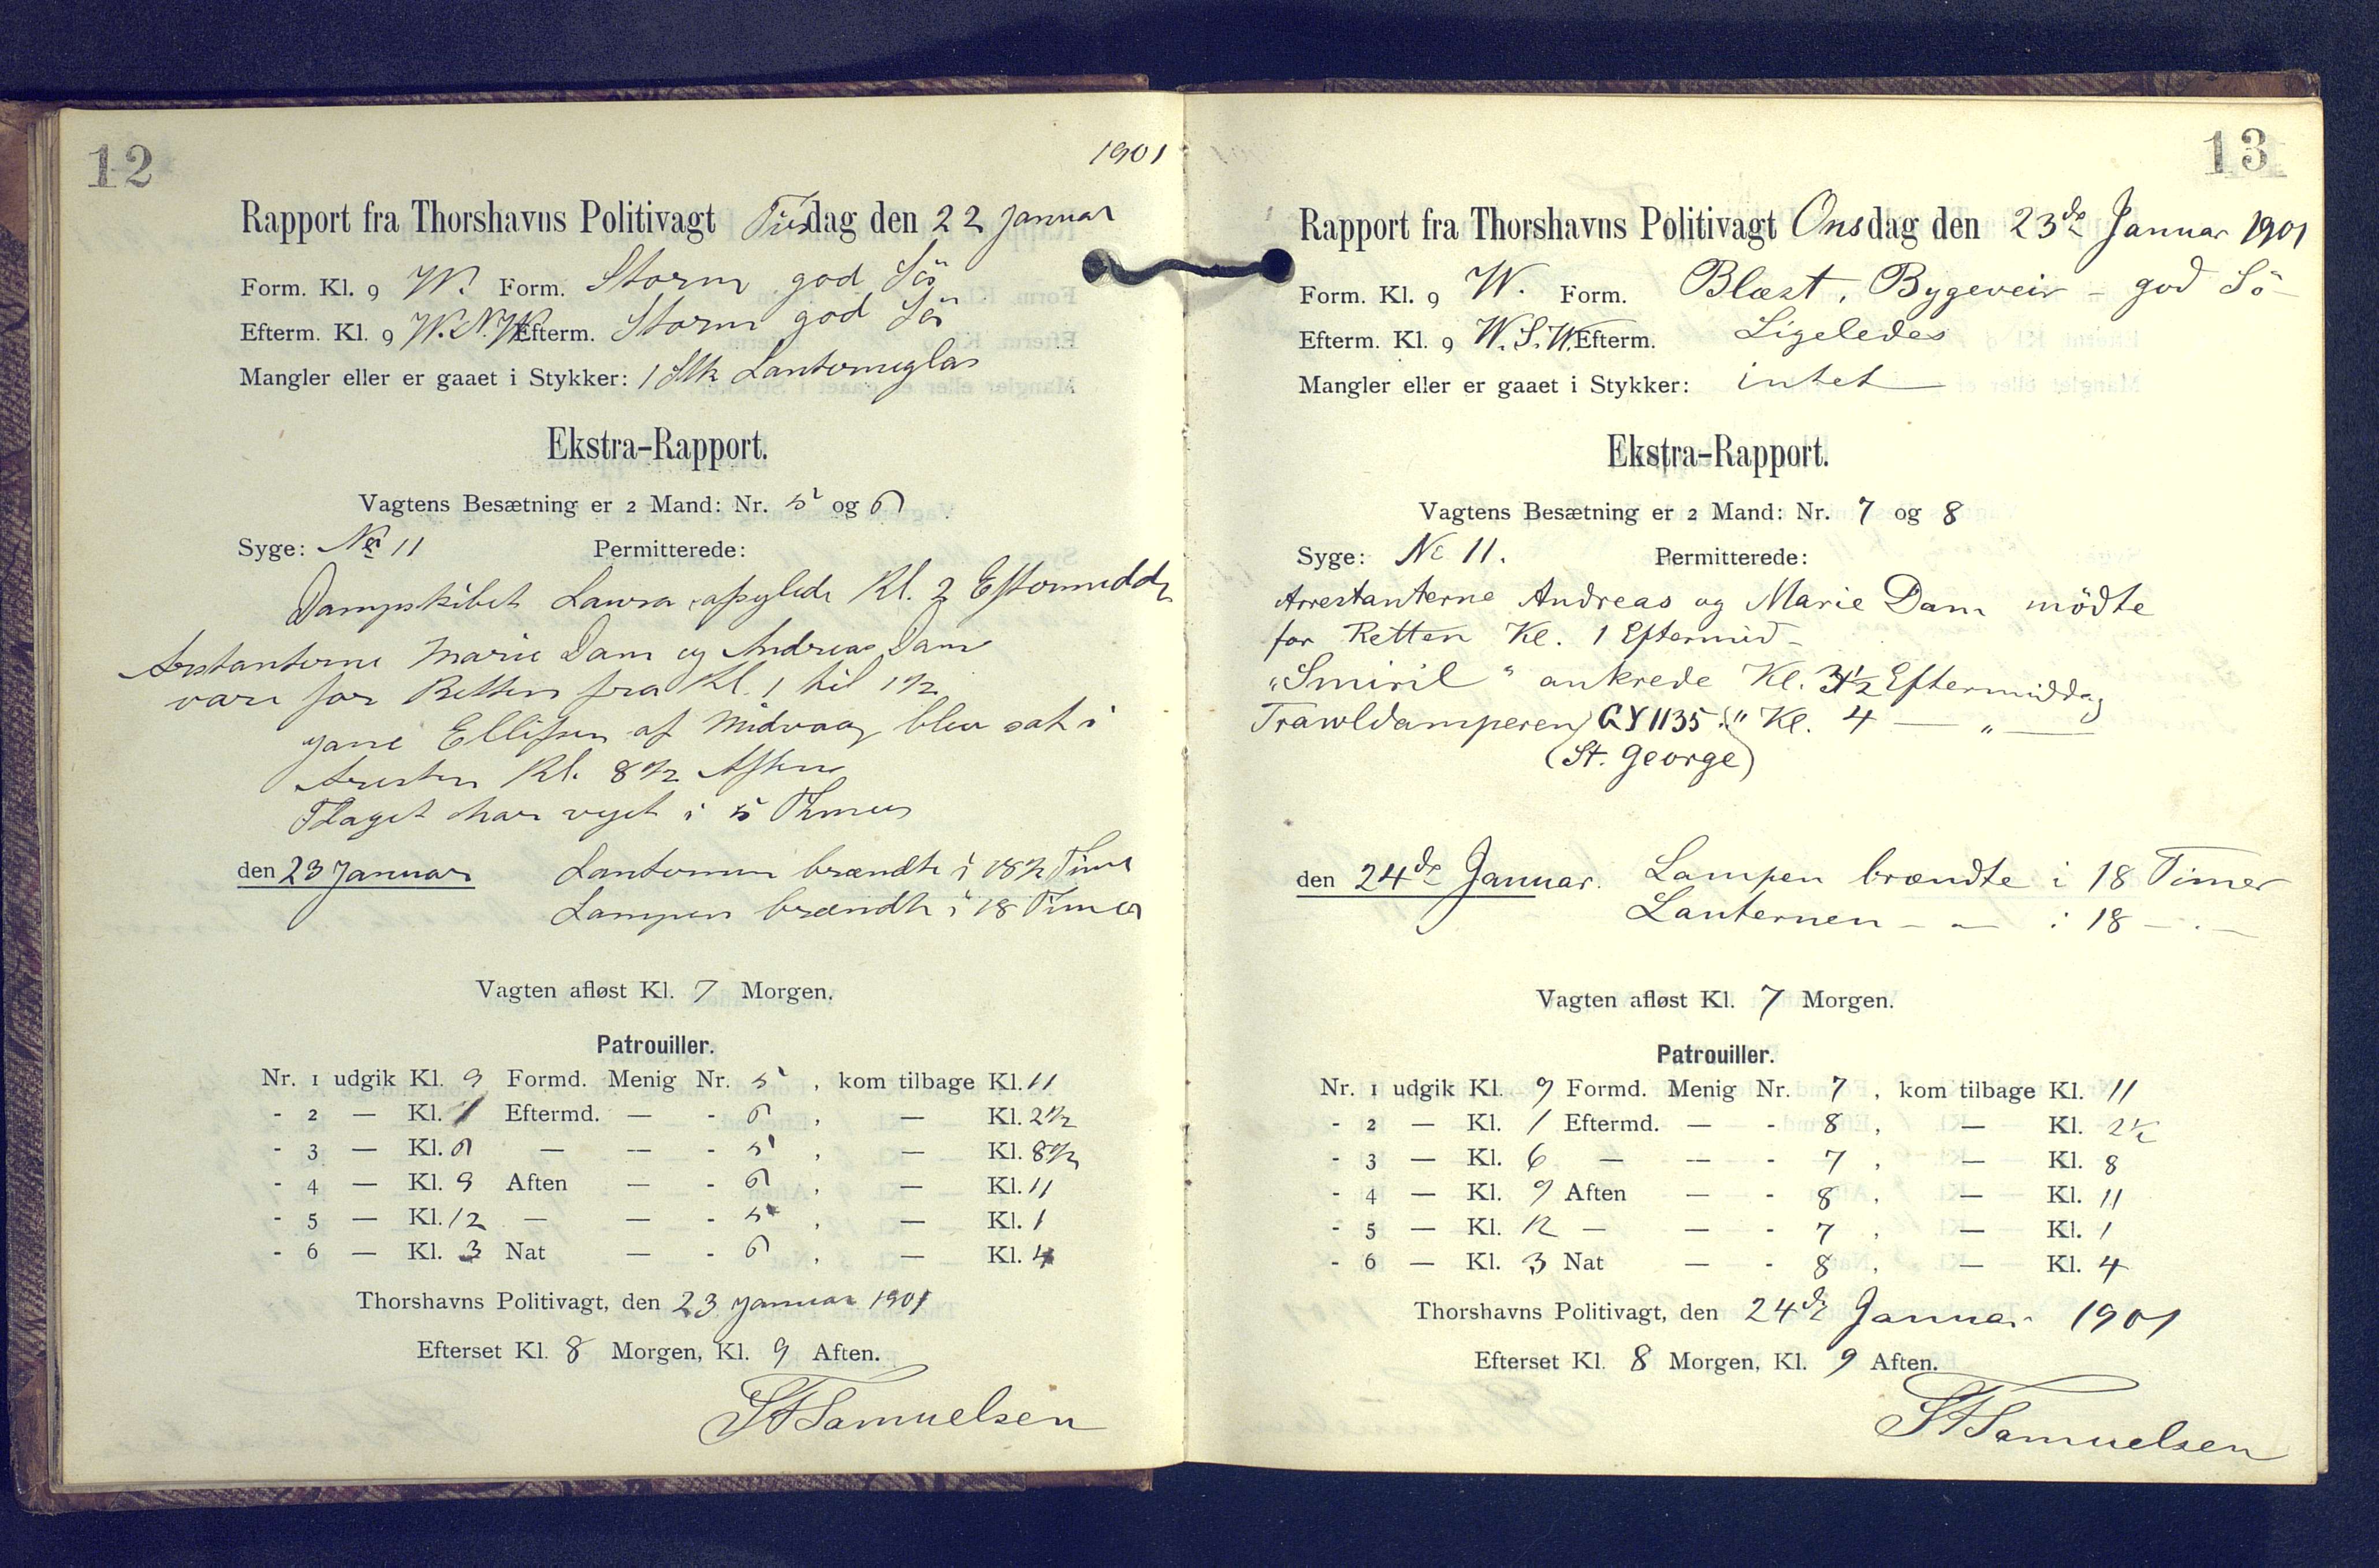 12
1901
Rapport fra Thorshavns Politivagt Tirsdag den 22 Januar
Form. Kl. 9 W. Form. Storm god Sö
Efterm. Kl. 9 W.N.W. Efterm. Storm god Sö
Mangler eller er gaaet i Stykker: 1 Stk Lanterneglas
Ekstra-Rapport.
Vagtens Besætning er 2 Mand: Nr. 5 og 6
Syge: No 11 Permitterede:
Dampskibet Laura afsejlede Kl. 2 Eftermiddag
Arestanterne Marie Dam og Andreas Dam
vare for Retten fra Kl. 1 til 1½
Jane Ellefsen af Midvaag blev sat i
Aresten Kl. 8½ Aften
Flaget har vejet i 5 Timer
den 23 Januar Lanternen brændte i 18½ Timer
Lampen brændte i 18 Timer
Vagten afløst Kl. 7 Morgen.
Patrouiller.
Nr. 1 udgik Kl. 9 Formd. Menig Nr. 5, kom tilbage Kl. 11
- 2 — Kl. 1 Eftermd. — - 6, — Kl. 2½
- 3 — Kl. 6 — — - 5, — Kl. 8½
- 4 — Kl. 9 Aften — - 6, — Kl. 11
- 5 — Kl. 12 — — - 5, — Kl. 1
- 6 — Kl. 3 Nat — - 6, — Kl. 4
Thorshavns Politivagt, den 23 Januar 1901
Efterset Kl. 8 Morgen, Kl. 9 Aften.
Samuelsen
13
Rapport fra Thorshavns Politivagt Onsdag den 23de Januar 1901
Form. Kl. 9 W. Form. Blæst, Bygeveir – god Sö –
Efterm. Kl. 9 W.S.W. Efterm. Ligeledes
Mangler eller er gaaet i Stykker: intet
Ekstra-Rapport.
Vagtens Besætning er 2 Mand: Nr. 7 og 8
Syge: No 11. Permitterede:
Arrestanterne Andreas og Marie Dam mödte
for Retten Kl. 1 Eftermid –
„Smiril“ ankrede Kl. 3½ Eftermiddag
Trawldamperen GY 1135 " Kl. 4 — „ —
(St. George)
den 24de Januar. Lampen brændte i 18 Timer
Lanternen – – i 18 – . –
Vagten afløst Kl. 7 Morgen.
Patrouiller.
Nr. 1 udgik Kl. 9 Formd. Menig Nr. 7, kom tilbage Kl. 11
- 2 — Kl. 1 Eftermd. — - 8, — Kl. 2½
- 3 — Kl. 6 — — - 7, — Kl. 8
- 4 — Kl. 9 Aften — - 8, — Kl. 11
- 5 — Kl. 12 — — - 7, — Kl. 1
- 6 — Kl. 3 Nat — - 8, — Kl. 4
Thorshavns Politivagt, den 24de Januar 1901
Efterset Kl. 8 Morgen, Kl. 9 Aften.
Samuelsen